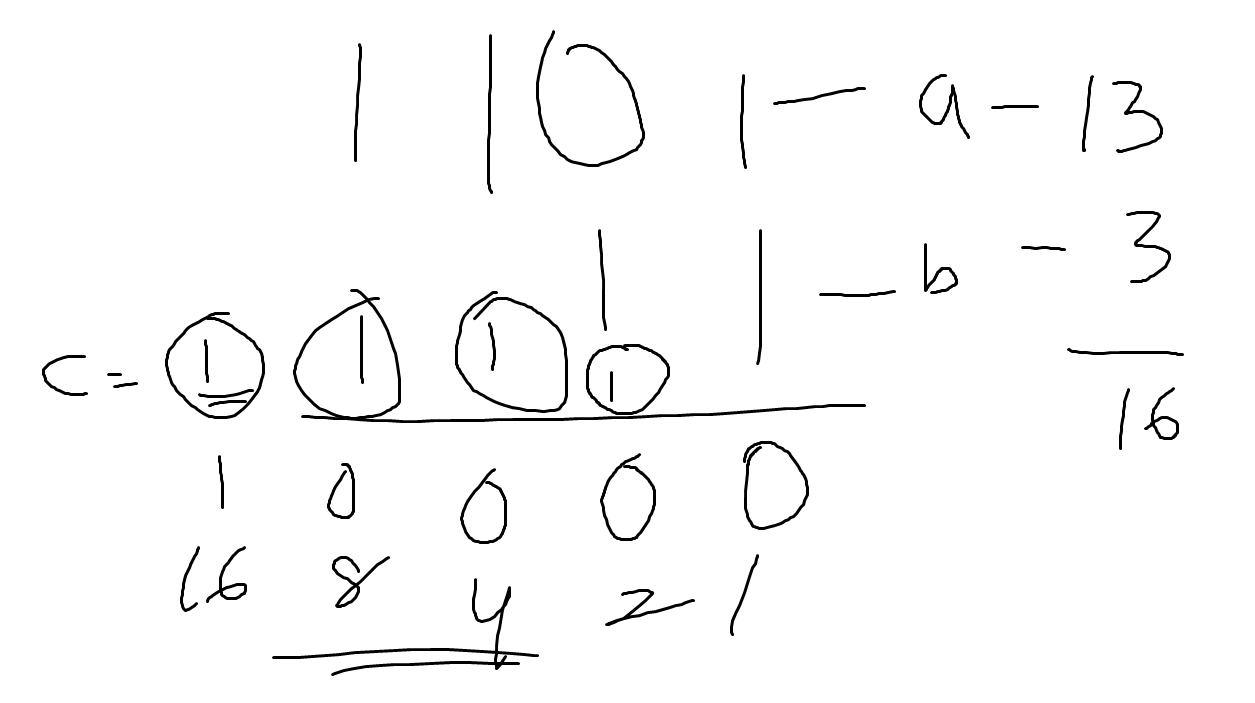 1 1 0 1 — a — 13
1 1 — b — 3
c = 1 1 1 1
1 0 0 0 0
16
16 8 4 2 1